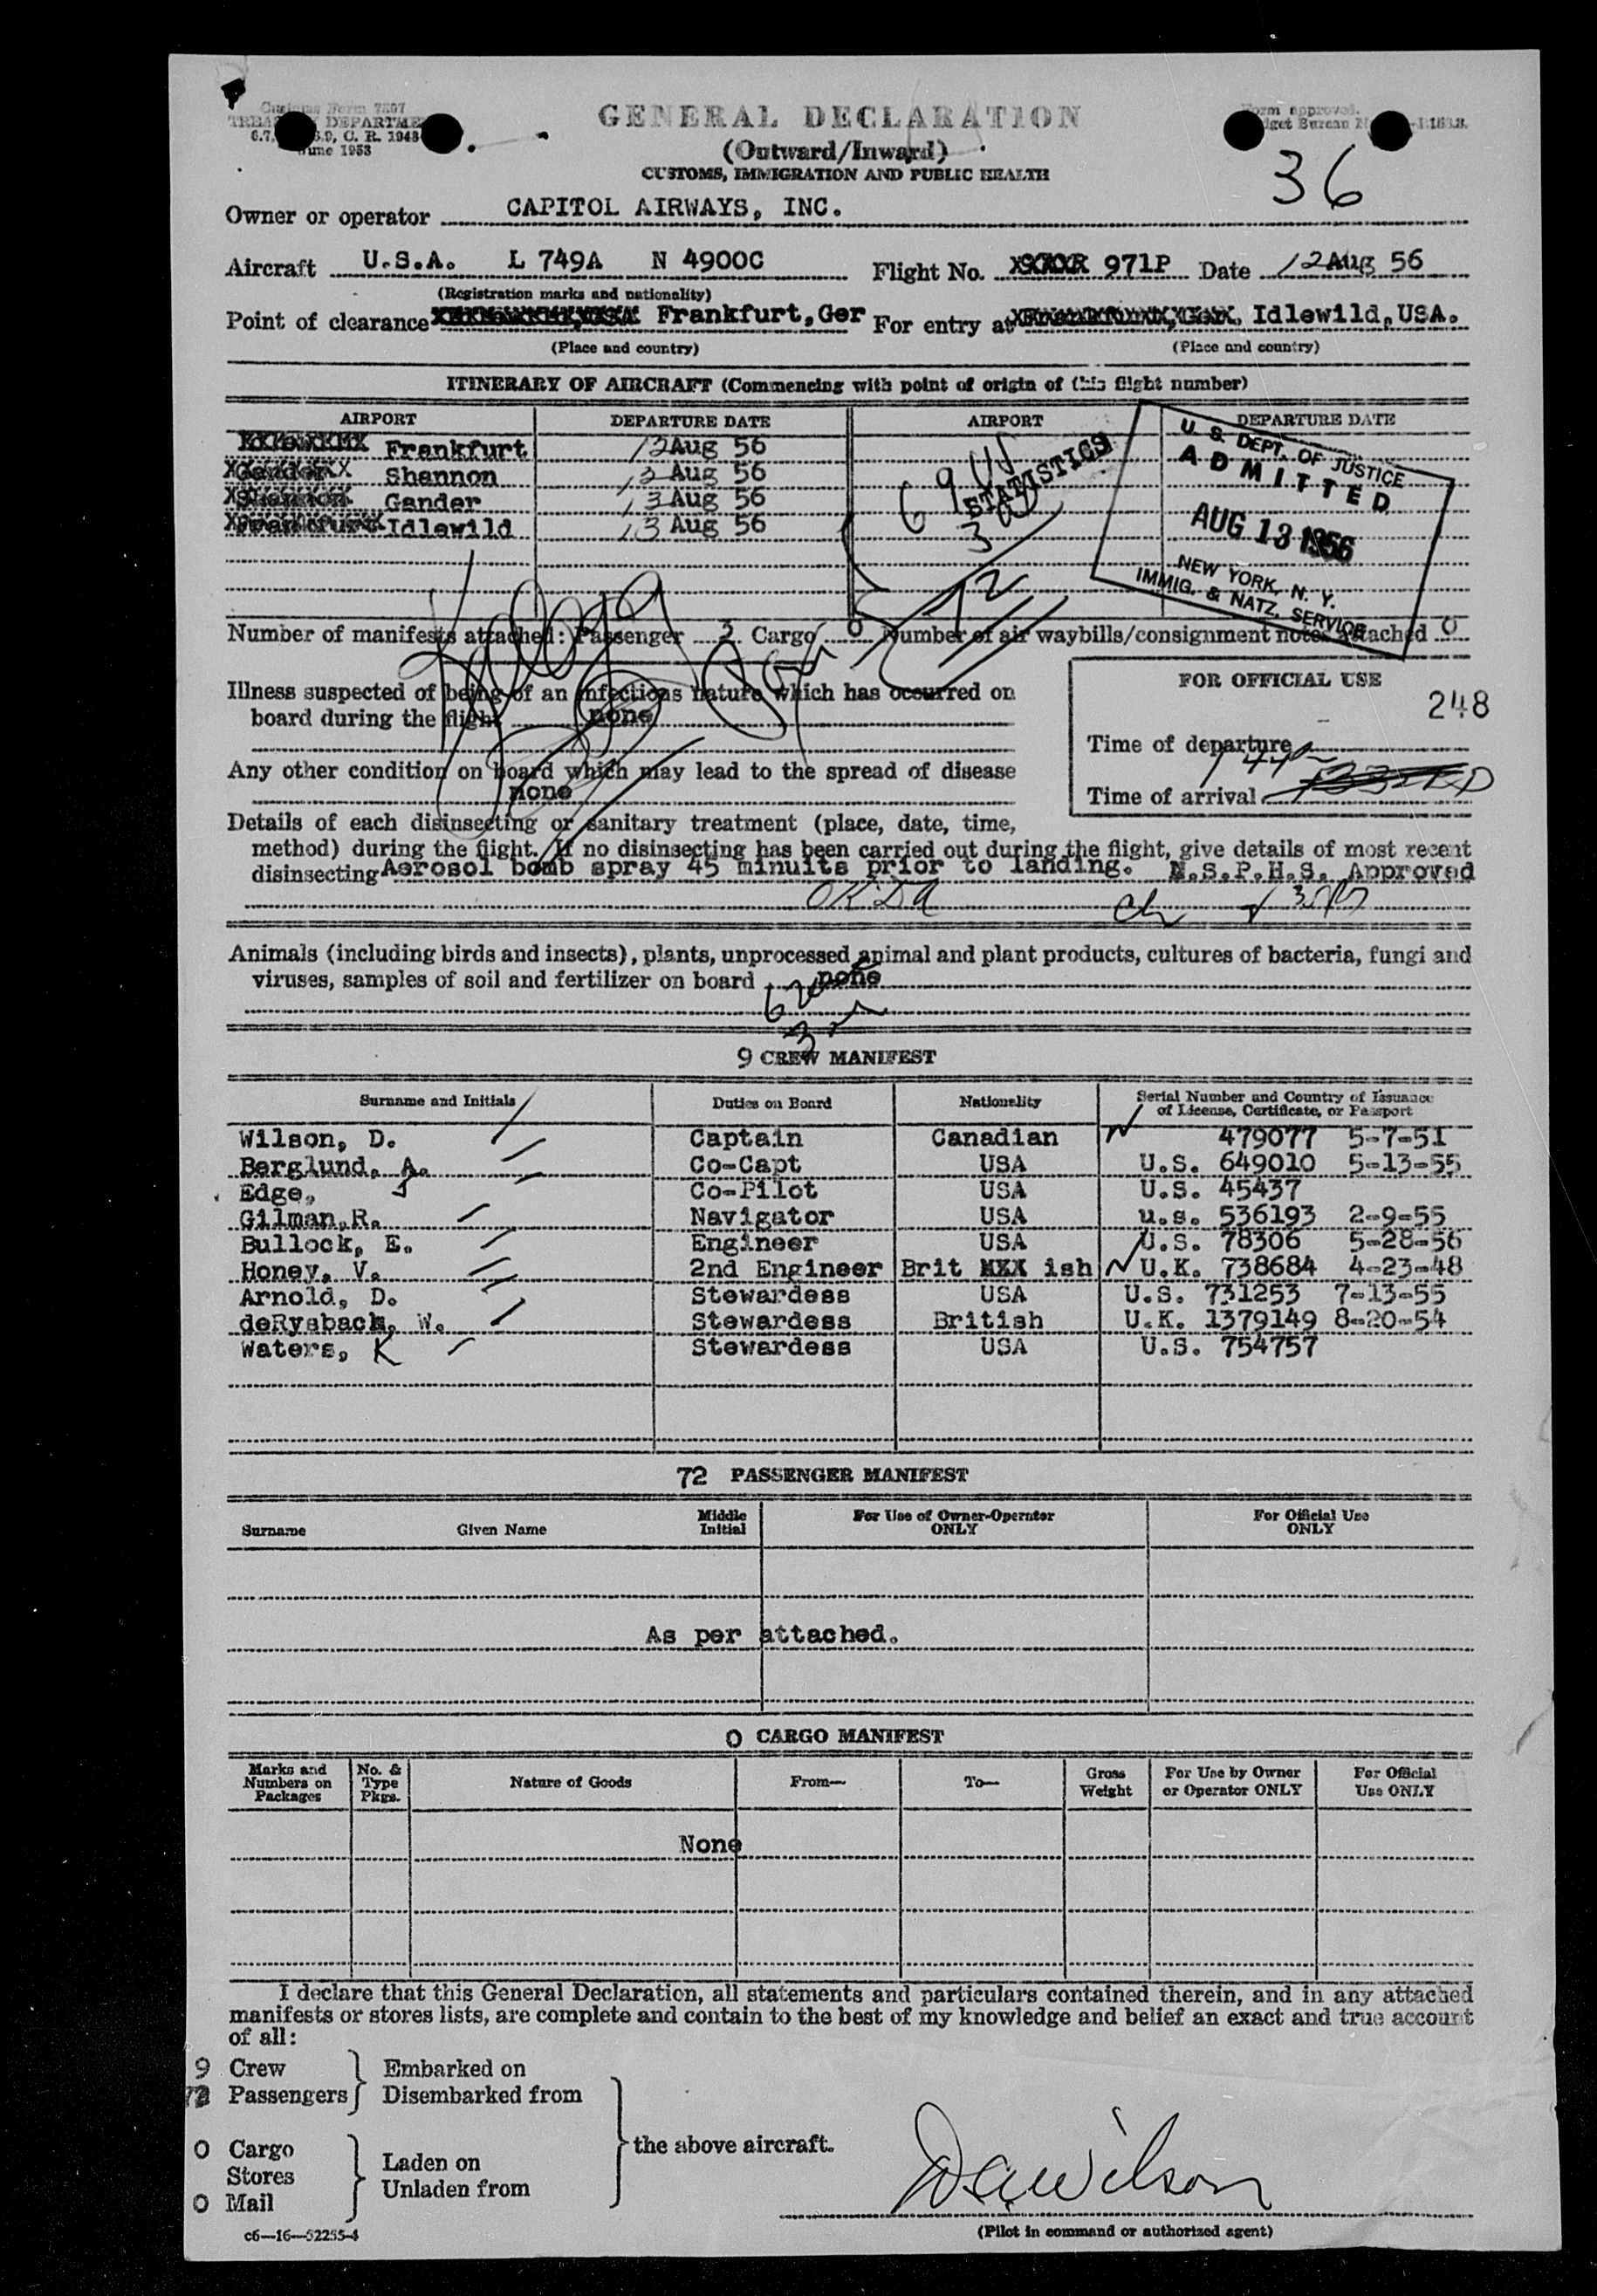 Customs Form 7507
GENERAL DECLARATION
Form approved.
TREASURY DEPARTMENT
Budget Bureau
6.7, 6.9, C. R. 1943
June 1953
(Outward/Inward)
CUSTOMS, IMMIGRATION AND PUBLIC HEALTH
36
Owner or operator CAPITOL AIRWAYS, INC.
Aircraft U.S.A. L 749A N 4900C Flight No. 971P Date 12 Aug 56
(Registration marks and nationality)
Point of clearance Frankfurt,Ger For entry at Idlewild,USA.
(Place and country) (Place and country)
ITINERARY OF AIRCRAFT (Commencing with point of origin of this flight number)
AIRPORT DEPARTURE DATE AIRPORT DEPARTURE DATE
Frankfurt 12 Aug 56
Shannon 13 Aug 56
Gander 13 Aug 56
Idlewild 13 Aug 56
STATISTICS
U. S. DEPT. OF JUSTICE
ADMITTED
AUG 13 1956
NEW YORK, N. Y.
IMMIG. & NATZ. SERVICE
Number of manifests attached: Passenger 2 Cargo 0 Number of air waybills/consignment notes attached 0
Illness suspected of being of an infectious nature which has occurred on
board during the flight none
FOR OFFICIAL USE
248
Time of departure
Any other condition on board which may lead to the spread of disease
none
Time of arrival
Details of each disinsecting or sanitary treatment (place, date, time,
method) during the flight. If no disinsecting has been carried out during the flight, give details of most recent
disinsecting Aerosol bomb spray 45 minuits prior to landing. N.S.P.H.S. Approved
Animals (including birds and insects), plants, unprocessed animal and plant products, cultures of bacteria, fungi and
viruses, samples of soil and fertilizer on board none
9 CREW MANIFEST
Surname and Initials Duties on Board Nationality Serial Number and Country of Issuance
of License, Certificate, or Passport
Wilson, D. Captain Canadian 479077 5-7-51
Berglund, A. Co-Capt USA U.S. 649010 5-13-55
Edge, J Co-Pilot USA U.S. 45437
Gilman,R. Navigator USA u.s. 536193 2-9-55
Bullock, E. Engineer USA U.S. 78306 5-28-56
Honey, V. 2nd Engineer Brit ish U.K. 738684 4-23-48
Arnold, D. Stewardess USA U.S. 731253 7-13-55
deRysbach, W. Stewardess British U.K. 1379149 8-20-54
Waters, K Stewardess USA U.S. 754757
72 PASSENGER MANIFEST
Surname Given Name Middle Initial For Use of Owner-Operator ONLY For Official Use ONLY
As per attached.
0 CARGO MANIFEST
Marks and Numbers on Packages No. & Type Pkgs. Nature of Goods From— To— Gross Weight For Use by Owner or Operator ONLY For Official Use ONLY
None
I declare that this General Declaration, all statements and particulars contained therein, and in any attached
manifests or stores lists, are complete and contain to the best of my knowledge and belief an exact and true account
of all:
9 Crew Embarked on
72 Passengers Disembarked from
the above aircraft.
0 Cargo Laden on
Stores
Unladen from
0 Mail
DaWilson
c6—16—52255-4
(Pilot in command or authorized agent)